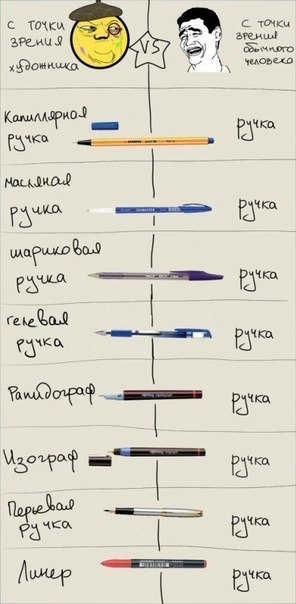 с точки
зрения
художника
VS
с точки
зрения
обычного
человека
Капиллярная
ручка
ручка
масляная
ручка
ручка
шариковая
ручка
ручка
гелевая
ручка
ручка
Рапидограф
ручка
Изограф
ручка
Перьевая
ручка
ручка
Линер
ручка